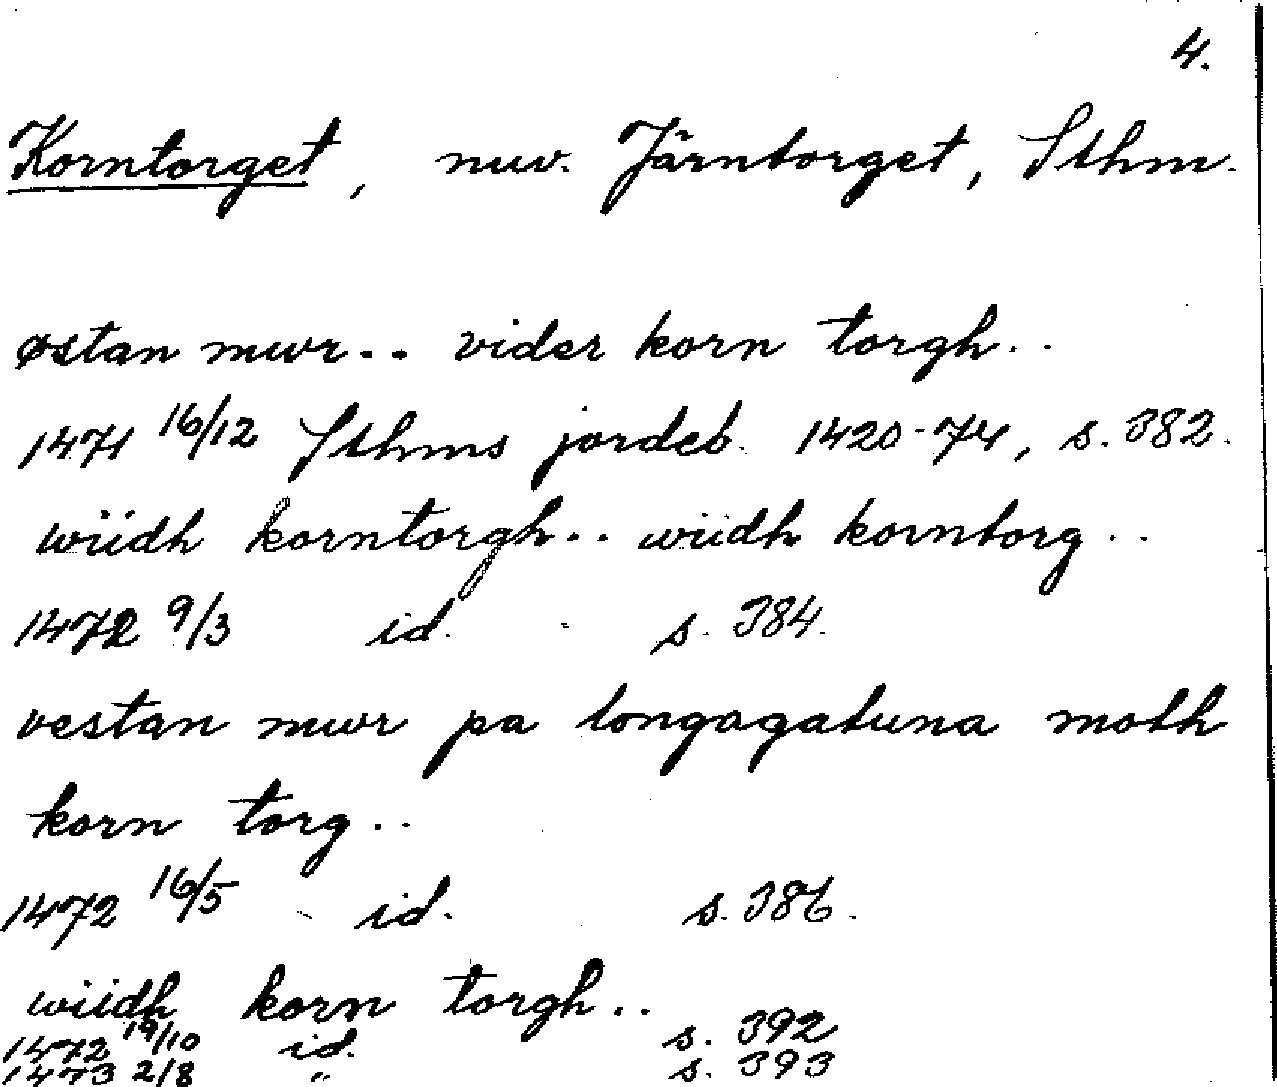 4.
Korntorget, nuv. Järntorget, Sthm.
østan mwr.. vider korn torgh..
1471 16/12 Sthms jordeb. 1420-74, s. 382.
wiidh korntorgh.. wiidh korntorg..
1472 9/3 id. s. 384.
vestan mwr pa longagatuna moth
korn torg..
1472 16/5 id. s. 386.
wiidh korn torgh..
1472 19/10 id. s. 392
1473 2/8 " s. 393